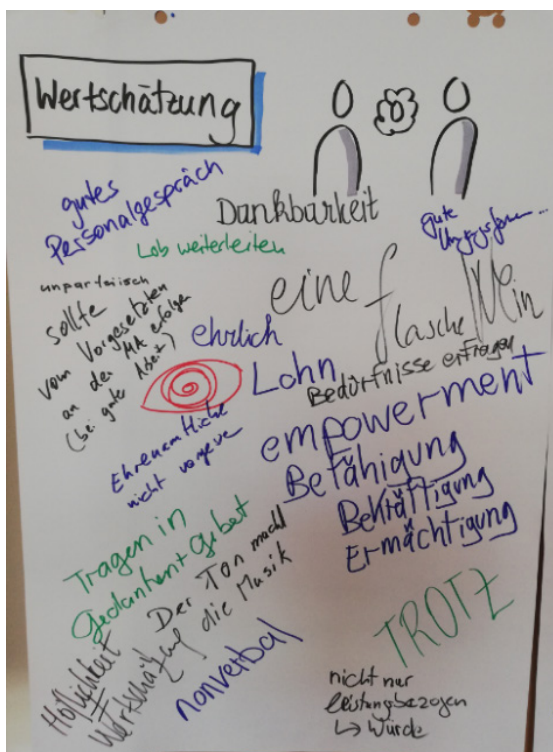 Wertschätzung
gutes
Personalgespräch
Dankbarkeit
gute
Lob weiterleiten
unparteiisch
sollte
vom Vorgesetzten
an den MA erfolgen
(bei gute Arbeit)
eine flasche Wein
ehrlich
Lohn
Bedürfnisse erfragen
Ehrenamtliche
nicht
empowerment
Befähigung
Bekräftigung
Ermächtigung
Tragen in
Gedanken + Gebet
Der Ton macht
die Musik
Höflichkeit
≠
Wertschätzung
nonverbal
TROTZ
nicht nur
leistungbezogen
↳ Würde